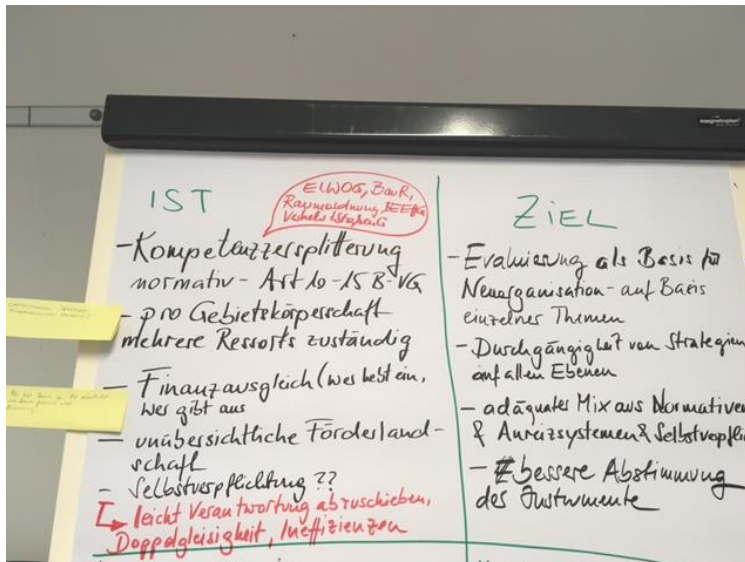 IST
ELWOG, BauR,
Raumordnung, EEffG
- Kompetenzzersplitterung
normativ - Art 10 - 15 B-VG
- pro Gebietskörperschaft
mehrere Ressorts zuständig
- Finanzausgleich (wer hebt ein,
wer gibt aus
- unübersichtliche Förderland-
schaft
- Selbstverpflichtung ??
leicht Verantwortung abzuschieben,
Doppelgleisigkeit, Ineffizienzen
ZiEL
- Evaluierung als Basis für
Neuorganisation - auf Basis
einzelner Themen
- Durchgängigkeit von Strategien
auf allen Ebenen
- adäquater Mix aus Normativen
& Anreizsystemen & Selbstverpfli
- bessere Abstimmung
der Instrumente
magnetoplan